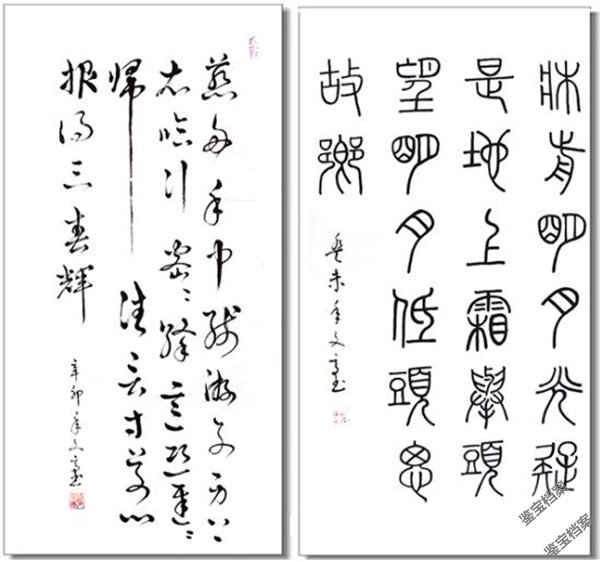 慈母手中线游子身上
衣临行密密缝意恐迟迟
歸谁言寸草心
报得三春輝
辛卯年文书
牀前明月光疑
是地上霜舉頭
望明月低頭思
故鄉
癸未年文书
鉴宝档案
鉴宝档案